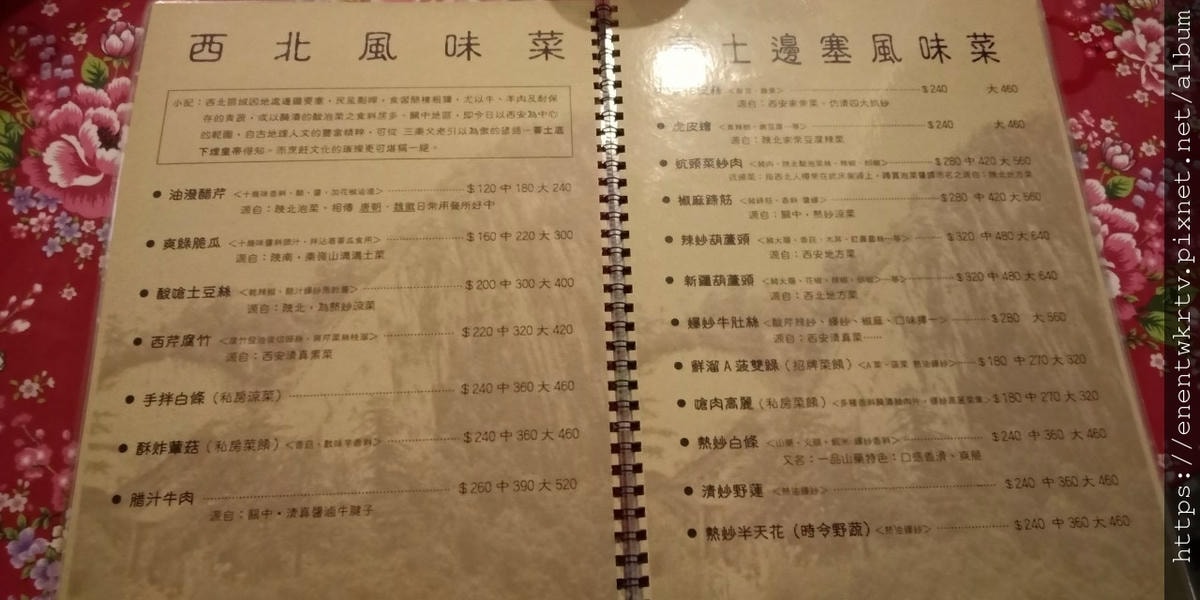 西北風味菜
小記：西北區域因地處邊疆要塞，民風剽悍，食習簡樸粗獷，尤以牛、羊肉及耐保
存的青蔬，或以醃漬的酸泡菜之食料居多。關中地區，即今日以西安為中心
的範圍，自古地理人文的豐富精粹，可從 三秦父老引以為傲的
下埋皇帝得知。而烹飪文化的璀璨更可堪稱一絕。
油潑醋芹 $120 中 180 大 240
源自：陝北泡菜，相傳 唐朝．魏徵日常用餐所好中
爽綠脆瓜 $160 中 220 大 300
源自：陝南．秦嶺山溝溝土菜
酸嗆土豆絲 $200 中 300 大 400
源自：陝北，為熱炒涼菜
西芹腐竹 $220 中 320 大 420
源自：西安清真素菜
手拌白條（私房涼菜） $240 中 360 大 460
酥炸蕈菇（私房菜餚） $240 中 360 大 460
腊汁牛肉 $260 中 390 大 520
源自：關中．清真醬滷牛腱子
土邊塞風味菜
$240 大 460
源自：西安家常菜、仿清四大抓炒
虎皮 $240 大 460
源自：陝北家常豆腐辣菜
炕頭菜炒肉 $280 中 420 大 560
椒麻蹄筋 $280 中 420 大 560
源自：關中．熱炒涼菜
辣炒葫蘆頭 $320 中 480 大 640
源自：西安地方菜
新疆葫蘆頭 $320 中 480 大 640
源自：西北地方菜
爆炒牛肚絲 <酸芹辣炒、爆炒、椒麻、口味擇一> $280 大 560
源自：西安清真菜……
鮮溜A菠雙綠（招牌菜餚） $180 中 270 大 320
嗆肉高麗（私房菜餚） $180 中 270 大 320
熱炒白條 $240 中 360 大 460
又名：一品山藥特色：口感香滑、爽脆
清炒野蓮 <熱油爆炒> $240 中 360 大 460
熱炒半天花（時令野蔬）<熱油爆炒> $240 中 360 大 460
https://enentwkrtv.pixnet.net/album